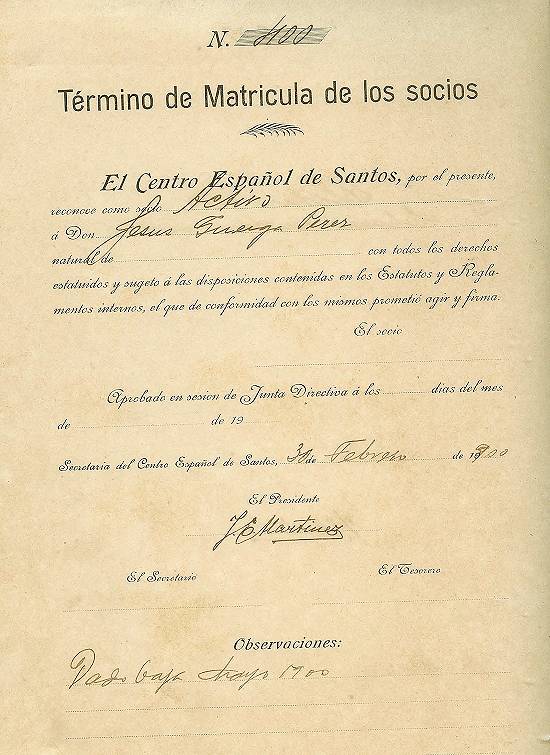 N. 400
Término de Matricula de los socios
El Centro Español de Santos, por el presente,
reconoce como socio Activo
á Don Jesus Perez
natural de con todos los derechos
estatuidos y sugeto á las disposiciones contenidas en los Estatutos y Regla-
mentos internos, el que de conformidad con los mismos prometió agir y firma.
El socio
Aprobado en sesion de Junta Directiva á los dias del mes
de de 19
Secretaria del Centro Español de Santos, 30 de Febrero de 1900
El Presidente
J C Martinez
El Secretario El Tesorero
Observaciones:
Dado baja Mayo 1900